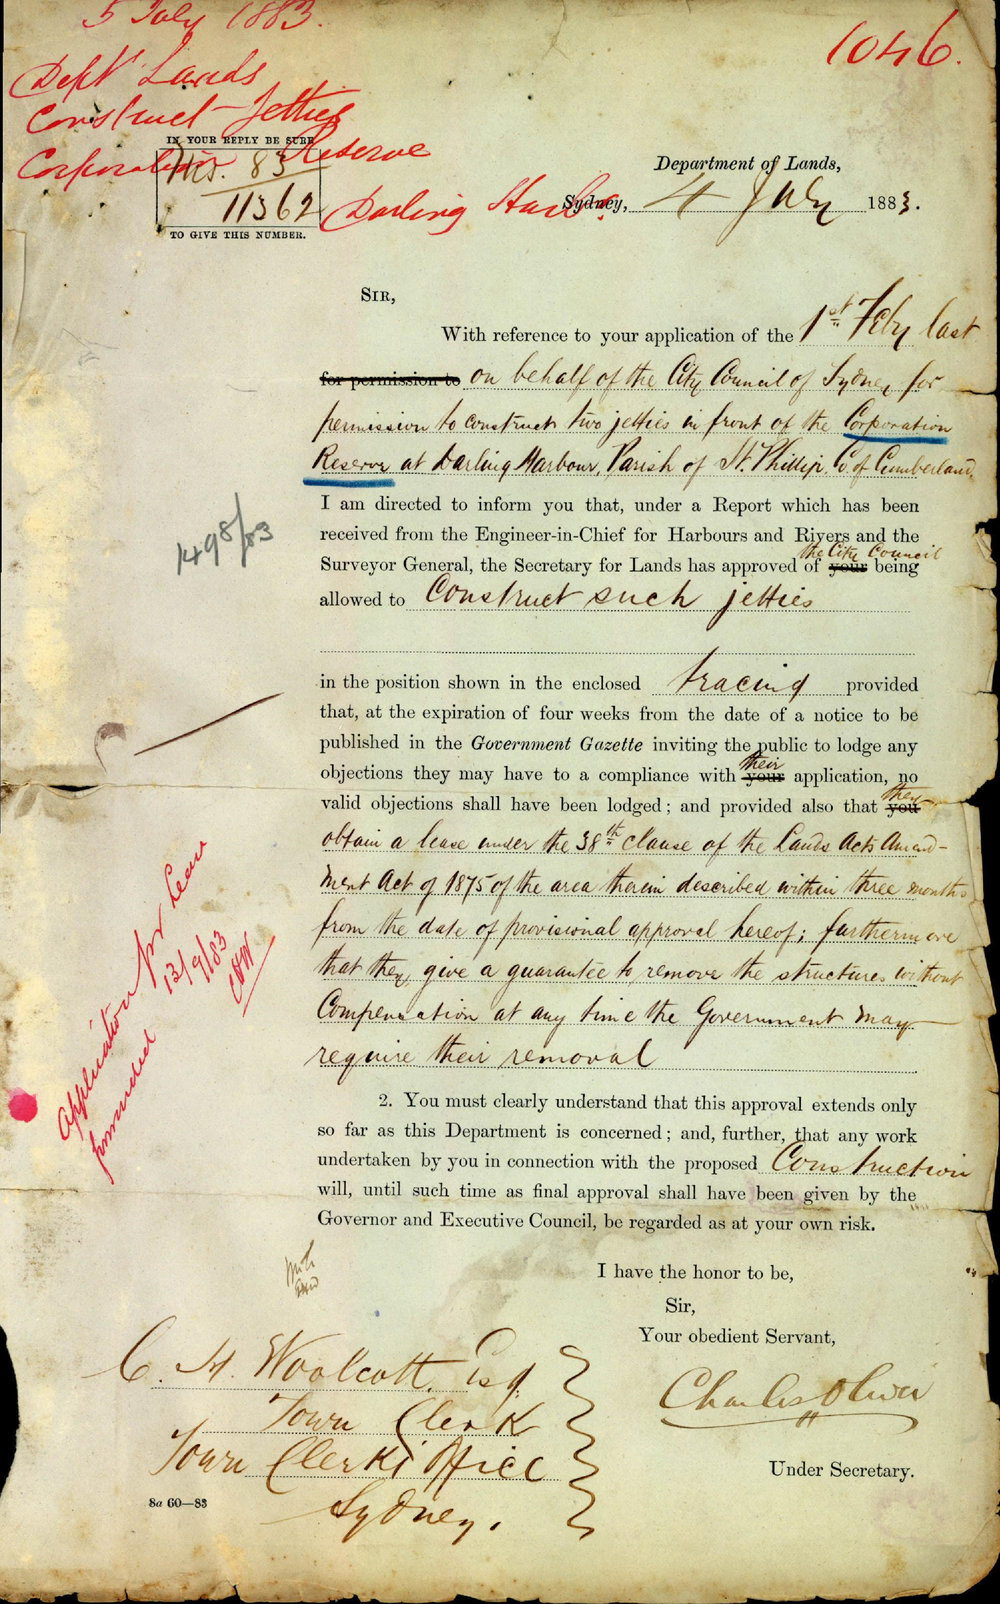 5 July 1883.
1046.
Dept Lands
Construct Jetties
Corporation Reserve
Darling Harbr.
IN YOUR REPLY BE SURE
Mis. 83
11362
TO GIVE THIS NUMBER.
Department of Lands,
Sydney, 4 July 1883.
SIR,
With reference to your application of the 1st Feby last
for permission to on behalf of the City Council of Sydney for
permission to construct two jetties in front of the Corporation
Reserve at Darling Harbour, Parish of St. Phillip, Co. of Cumberland,
I am directed to inform you that, under a Report which has been
received from the Engineer-in-Chief for Harbours and Rivers and the
Surveyor General, the Secretary for Lands has approved of your the City Council being
allowed to Construct such jetties
in the position shown in the enclosed tracing provided
that, at the expiration of four weeks from the date of a notice to be
published in the Government Gazette inviting the public to lodge any
objections they may have to a compliance with your their application, no
valid objections shall have been lodged; and provided also that you they
obtain a lease under the 38th clause of the Lands Acts Amend-
ment Act of 1875 of the area therein described within three months
from the date of provisional approval hereof; furthermore
that they give a guarantee to remove the structures without
Compensation at any time the Government may
require their removal
2. You must clearly understand that this approval extends only
so far as this Department is concerned; and, further, that any work
undertaken by you in connection with the proposed Construction
will, until such time as final approval shall have been given by the
Governor and Executive Council, be regarded as at your own risk.
I have the honor to be,
Sir,
Your obedient Servant,
Charles Oliver
Under Secretary.
C. H. Woolcott, Esq.
Town Clerk
Town Clerk's Office
Sydney.
8a 60—83
1498/83
Application for Lease
forwarded 13/9/83